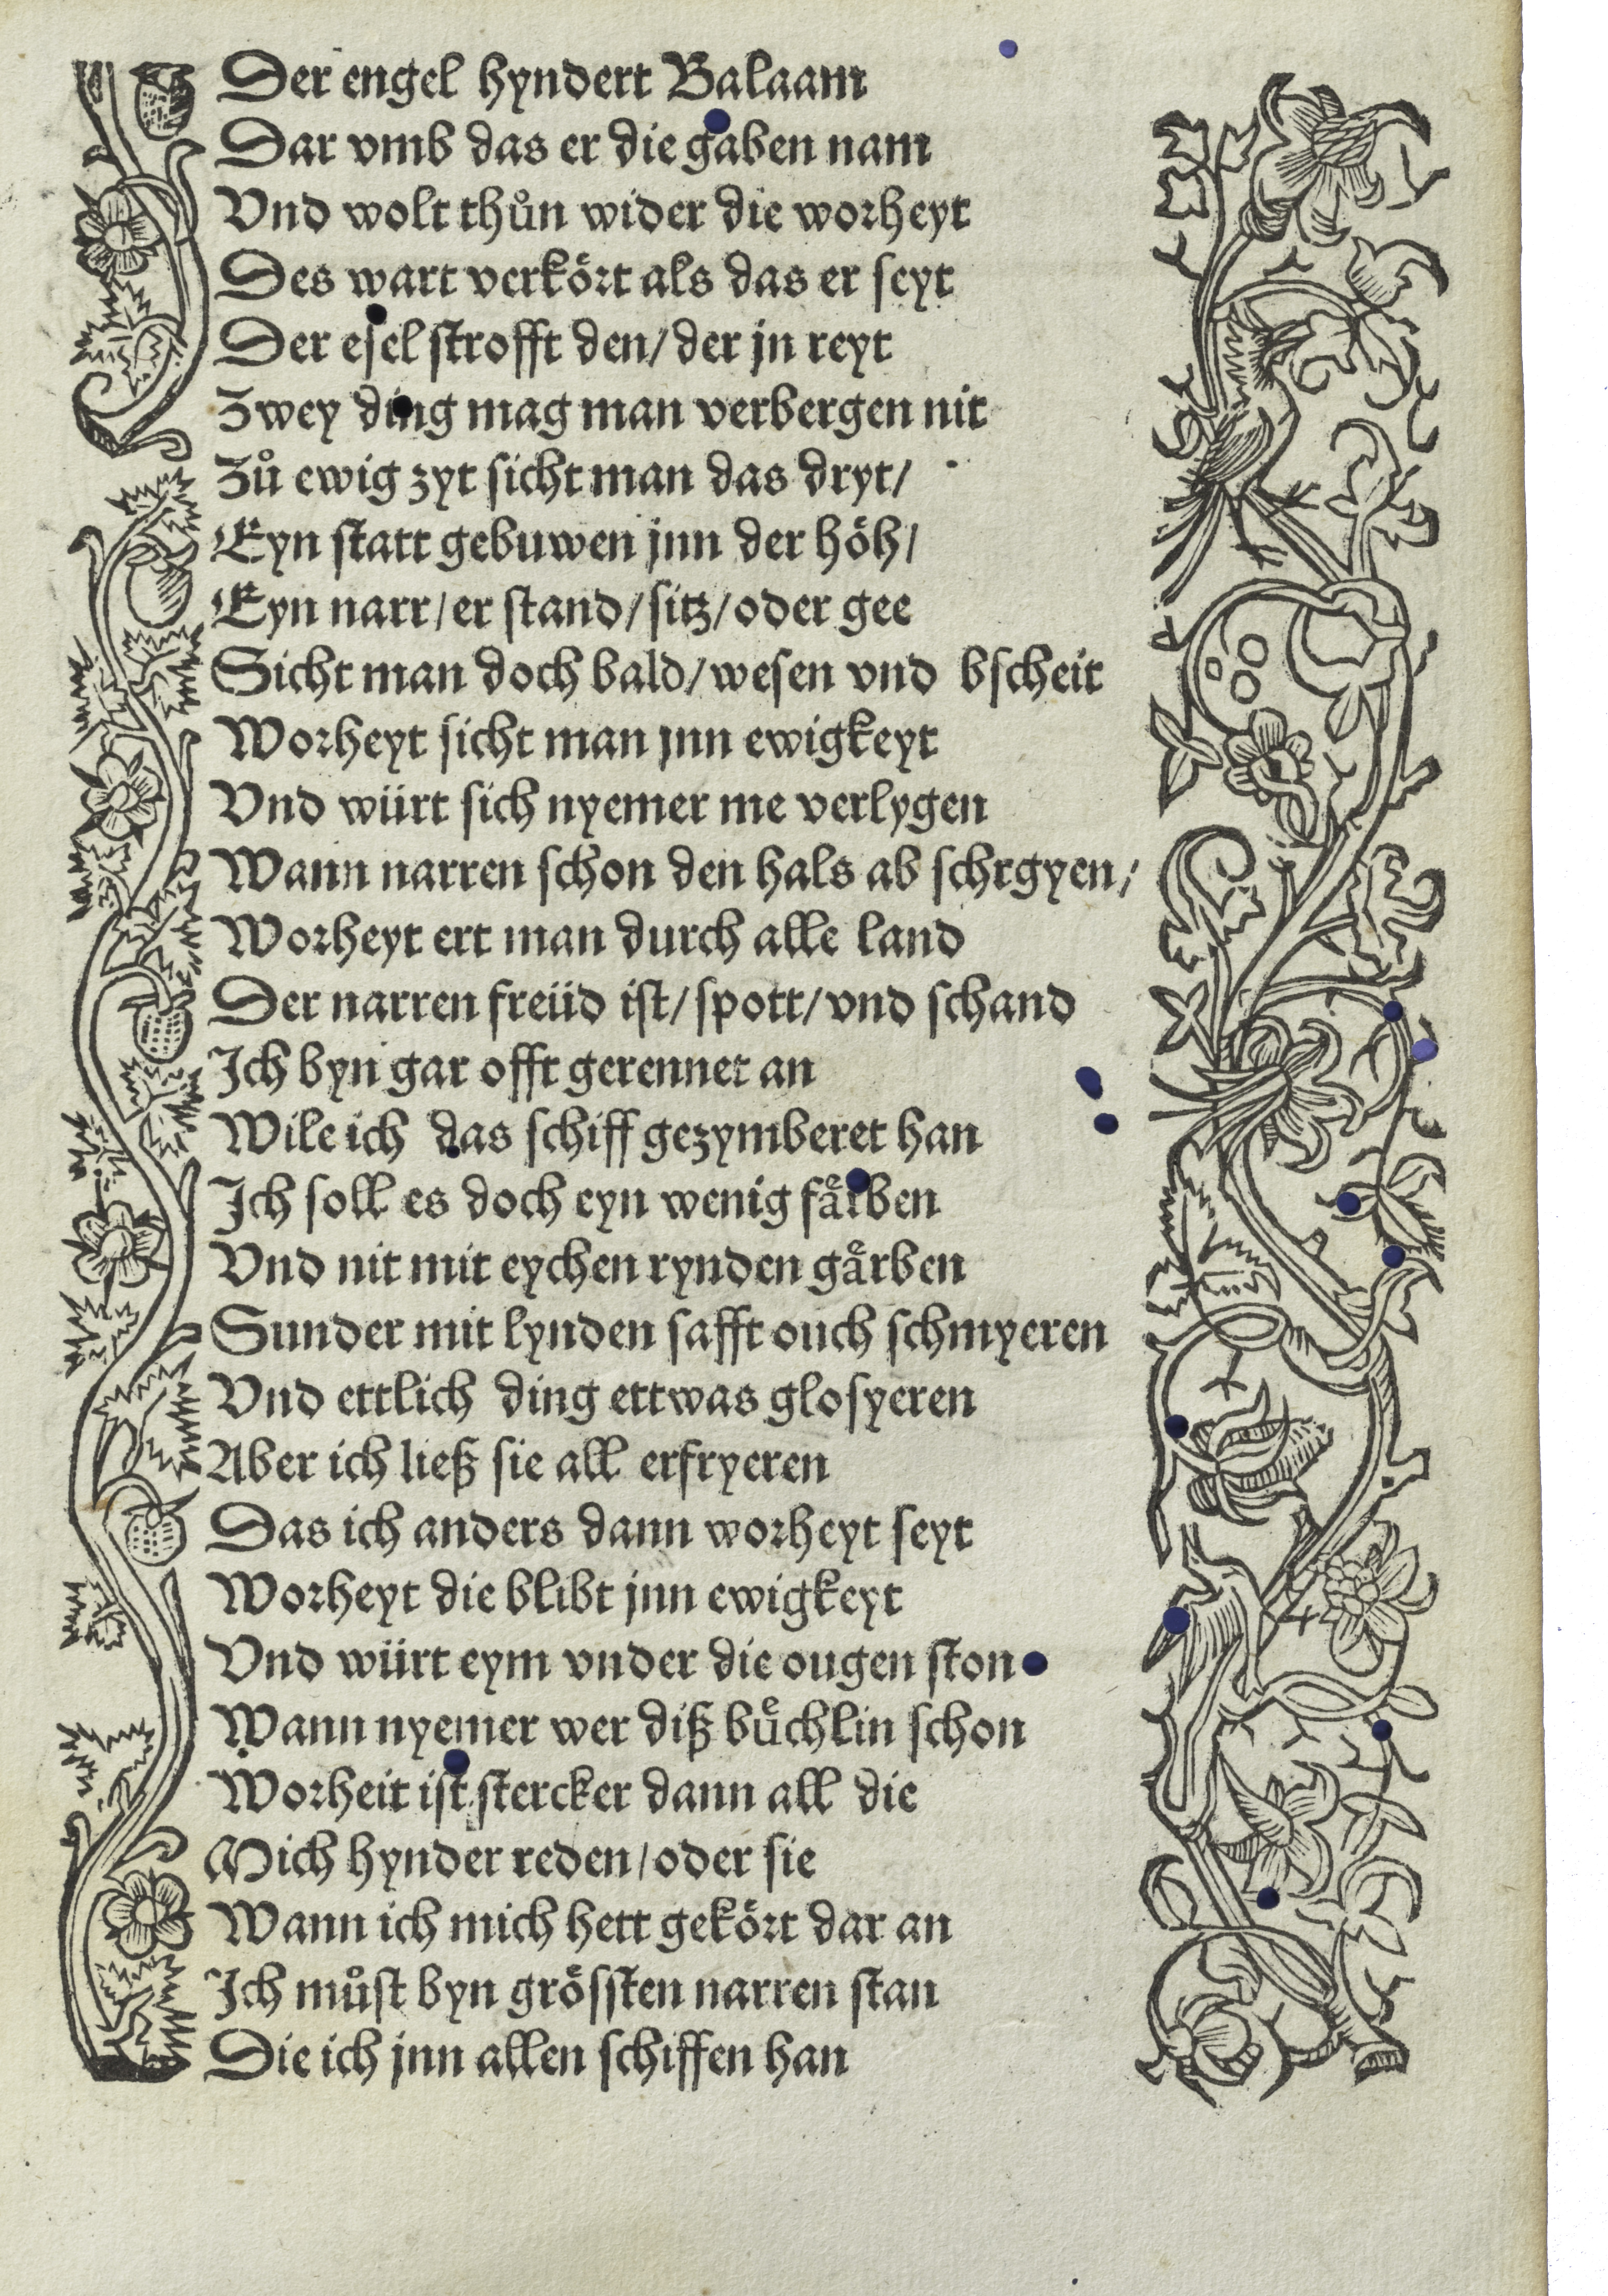 Der engel hyndert Balaam
Dar vmb das er die gaben nam
Vnd wolt thůn wider die worheyt
Des wart verkört als das er seyt
Der esel strofft den/ der jn reyt
Zwey ding mag man verbergen nit
Zů ewig zyt sicht man das dryt/
Eyn statt gebuwen jnn der höh/
Eyn narr/ er stand/ sitz/ oder gee
Sicht man doch bald/ wesen vnd bscheit
Worheyt sicht man jnn ewigkeyt
Vnd würt sich nyemer me verlygen
Wann narren schon den hals ab schrgyen/
Worheyt ert man durch alle land
Der narren freüd ist/ spott/ vnd schand
Ich byn gar offt gerennet an
Wile ich das schiff gezymberet han
Ich soll es doch eyn wenig faͤrben
Vnd nit mit eychen rynden gaͤrben
Sunder mit lynden safft ouch schmyeren
Vnd ettlich ding ettwas glosyeren
Aber ich ließ sie all erfryeren
Das ich anders dann worheyt seyt
Worheyt die blibt jnn ewigkeyt
Vnd würt eym vnder die ougen ston
Wann nyemer wer diß buͤchlin schon
Worheit ist stercker dann all die
Mich hynder reden/ oder sie
Wann ich mich hett gekört dar an
Ich můst byn grössten narren stan
Die ich jnn allen schiffen han